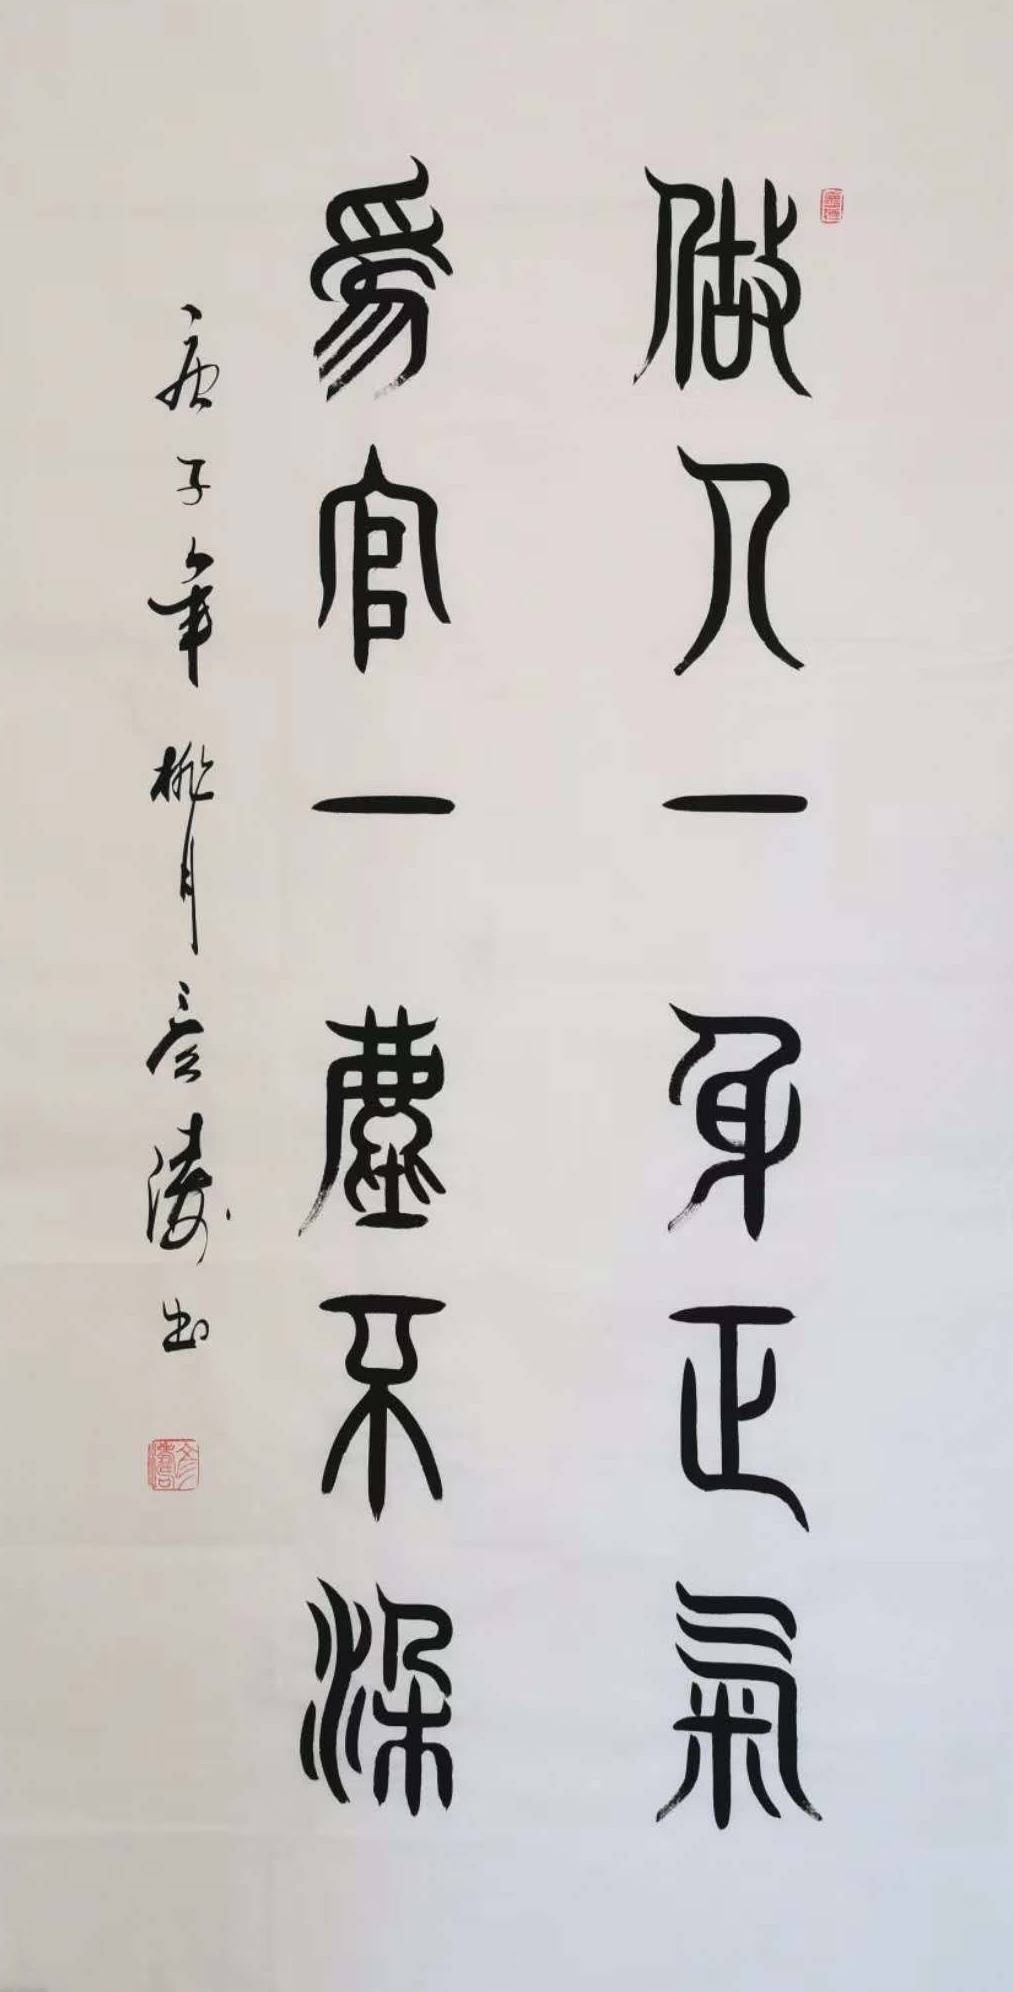 做人一身正氣
為官一塵不染
庚子年桃月彥濤书